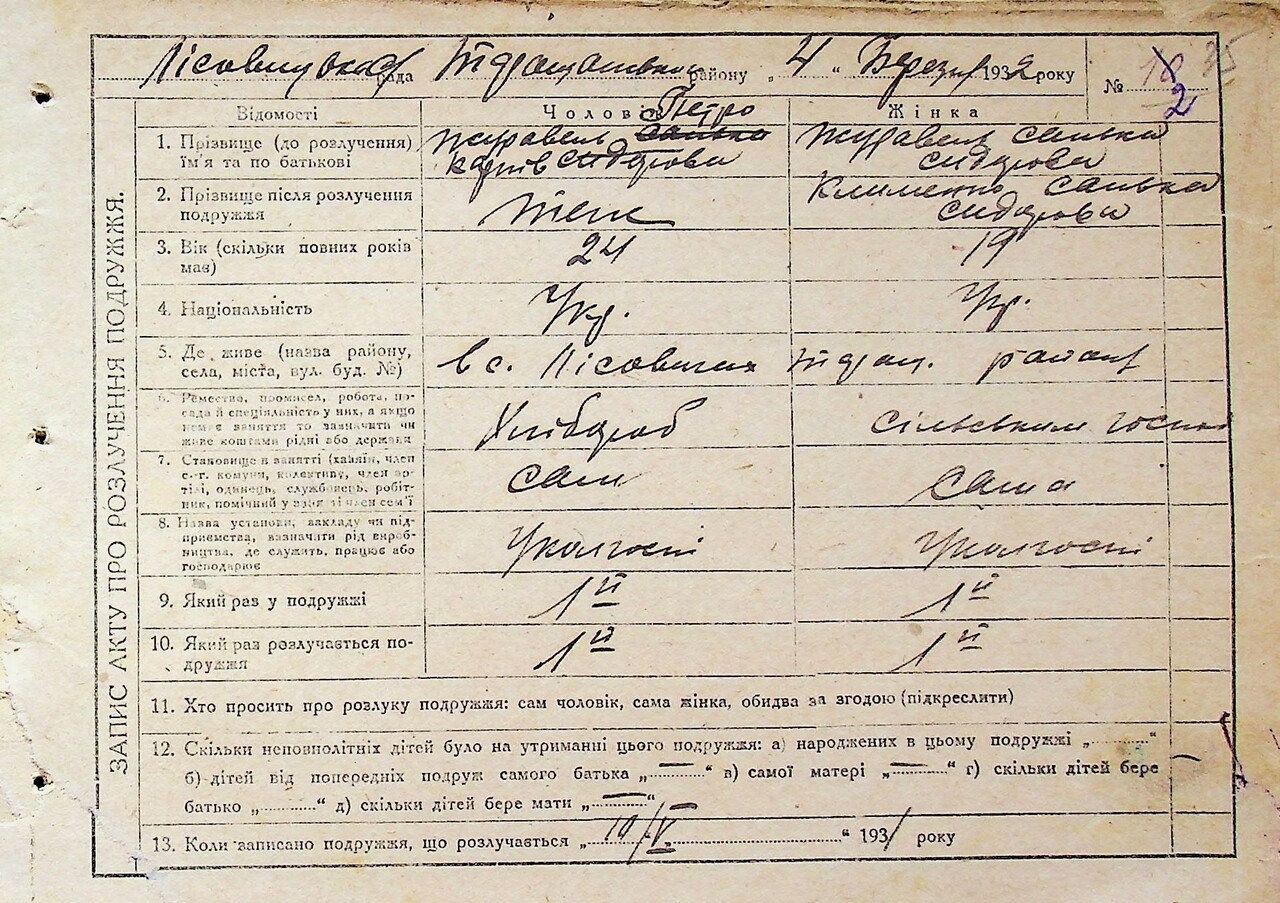 ЗАПИС АКТУ ПРО РОЗЛУЧЕННЯ ПОДРУЖЖЯ.
рада району „ 4 “ Березня 1932 року
№ 18 35
2
Відомості Чоловік Жінка
Петро
1. Прізвище (до розлучення) Журавель Санька Журавель Санька
їм'я та по батькові Сидорова Сидорова
2. Прізвище після розлучення Клименко Санька
подружжя теж Сидорова
3. Вік (скільки повних років 24 19
має)
4. Національність Укр. Укр.
5. Де живе (назва району, в с. Лісовичах район
села, міста, вул. буд. №)
6. Ремества, промисел, робота, по-
сада й спеціяльність у них, а якщо Хлібороб сільським госпо
немає заняття то зазначити чи
живе коштами рідні або держави
7. Становище в занятті (хазяїн, член
с.-г. комуни, колективу, член ар- сам сама
тілі, одинець, службовець, робіт-
ник, помічний у занятті член сем'ї
8. Назва установи, закладу чи під-
приємства, зазначити рід вироб- Уколгоспі Уколгоспі
ництва, де служить, працює або
господарює
9. Який раз у подружжі 1й 1й
10. Який раз розлучається по- 1й 1й
дружжя
11. Хто просить про розлуку подружжя: сам чоловік, сама жінка, обидва за згодою (підкреслити)
12. Скільки неповнолітніх дітей було на утриманні цього подружжя: а) народжених в цьому подружжі „..........“ —
б) дітей від попередніх подруж самого батька „—“ в) самої матері „—“ г) скільки дітей бере
батько „..........“ д) скільки дітей бере мати „—“
13. Коли записано подружжя, що розлучається „ 10/V “ 1931 року